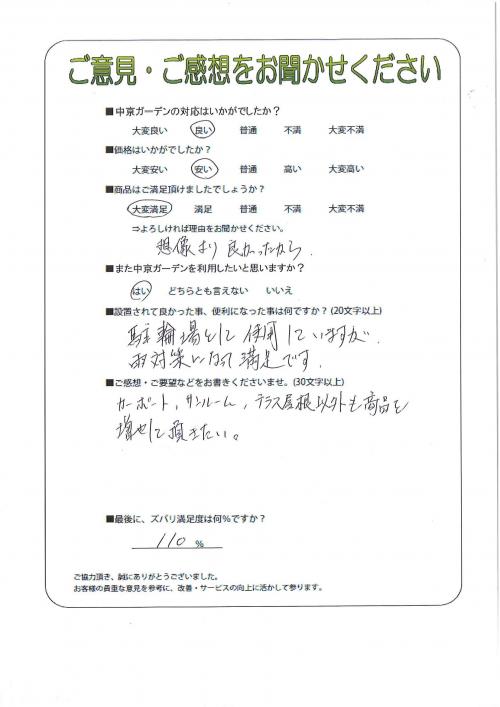 ご意見・ご感想をお聞かせください
■中京ガーデンの対応はいかがでしたか？
大変良い 良い 普通 不満 大変不満
■価格はいかがでしたか？
大変安い 安い 普通 高い 大変高い
■商品はご満足頂けましたでしょうか？
大変満足 満足 普通 不満 大変不満
⇒よろしければ理由をお聞かせください。
想像より良かったから.
■また中京ガーデンを利用したいと思いますか？
はい どちらとも言えない いいえ
■設置されて良かった事、便利になった事は何ですか？(20文字以上)
駐輪場として使用していますが、
雨対策になって満足です.
■ご感想・ご要望などをお書きくださいませ。(30文字以上)
カーポート, サンルーム, テラス屋根以外も商品を
増やして頂きたい。
■最後に、ズバリ満足度は何％ですか？
110 %
ご協力頂き、誠にありがとうございました。
お客様の貴重な意見を参考に、改善・サービスの向上に活かして参ります。